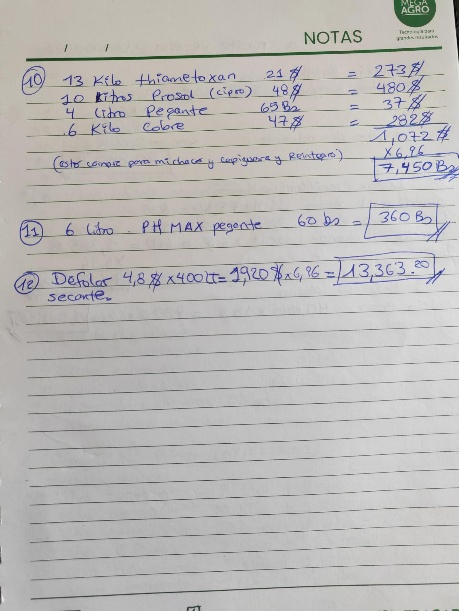 MEGA
AGRO
Tecnología para
grandes resultados
/ /
NOTAS
10 13 Kilo thiametoxan 21 $ = 273 $
10 Litros Prosol (cipro) 48 $ = 480 $
4 Litro Pegante 65 Bs = 37 $
6 Kilo Cobre 47 $ = 282 $
1,072 $
x6,96
(esto compre para michaca y capiguara y Reintegro)
7,450 Bs
11 6 Litro - PH MAX pegente 60 bs = 360 Bs
12 Defolar 4,8 $ x400 LT= 1,920 $ x6,96 = 13,363.20
secante.